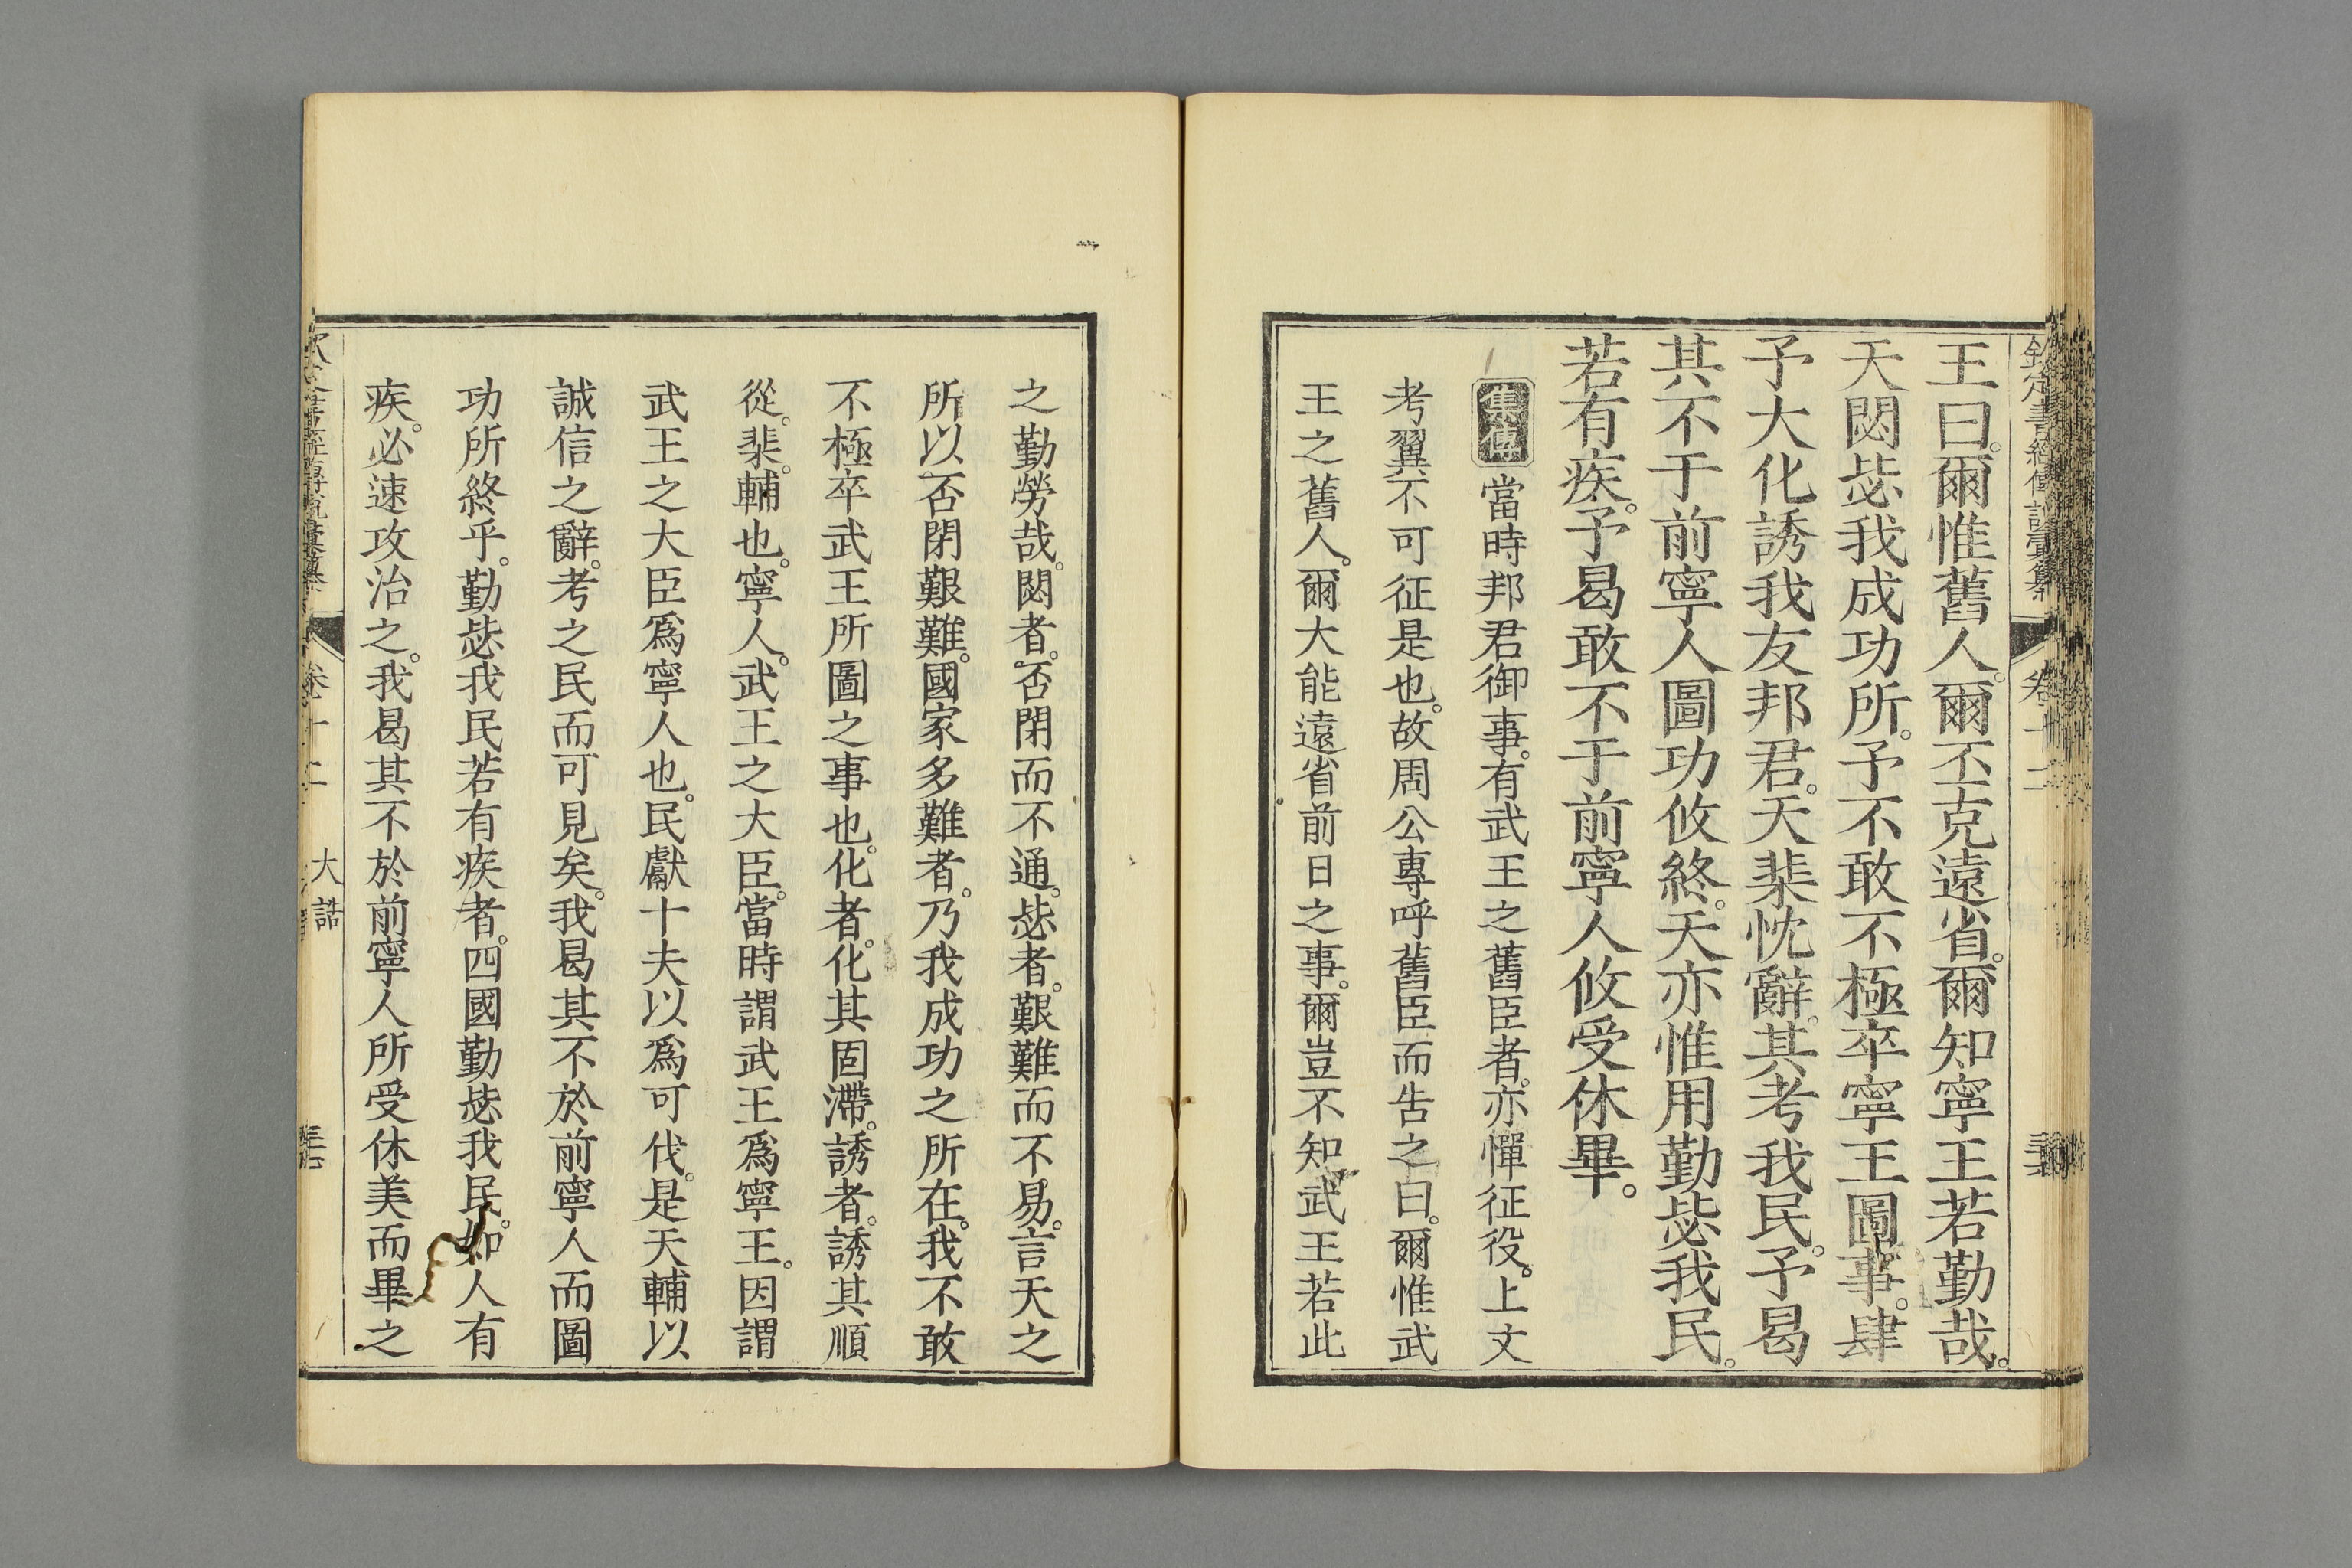 欽定書經傳說彙纂 卷十二
王曰。爾惟舊人。爾丕克遠省。爾知寧王若勤哉。
天閟毖我成功所。予不敢不極卒寧王圖事。肆
予大化誘我友邦君。天棐忱辭。其考我民。予曷
其不于前寧人圖功攸終。天亦惟用勤毖我民。
若有疾。予曷敢不于前寧人攸受休畢。
集傳 當時邦君御事。有武王之舊臣者。亦憚征役。上文
考翼不可征是也。故周公專呼舊臣而告之曰。爾惟武
王之舊人。爾大能遠省前日之事。爾豈不知武王若此
之勤勞哉。閟者。否閉而不通。毖者。艱難而不易。言天之
所以否閉艱難。國家多難者。乃我成功之所在。我不敢
不極卒武王所圖之事也。化者。化其固滯。誘者。誘其順
從。棐。輔也。寧人。武王之大臣。當時謂武王爲寧王。因謂
武王之大臣爲寧人也。民獻十夫以爲可伐。是天輔以
誠信之辭。考之民而可見矣。我曷其不於前寧人而圖
功所終乎。勤毖我民若有疾者。四國勤毖我民。如人有
疾。必速攻治之。我曷其不於前寧人所受休美而畢之
卷十二 大誥